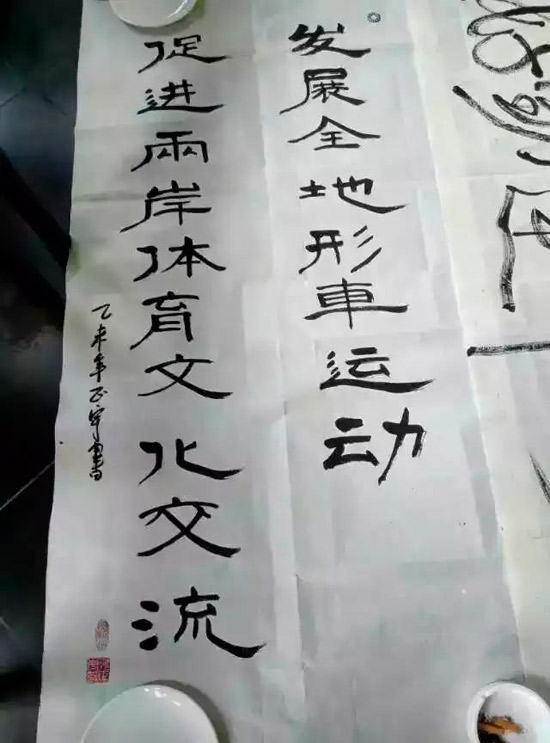 发展全地形車运动
促进兩岸体育文化交流
乙未年